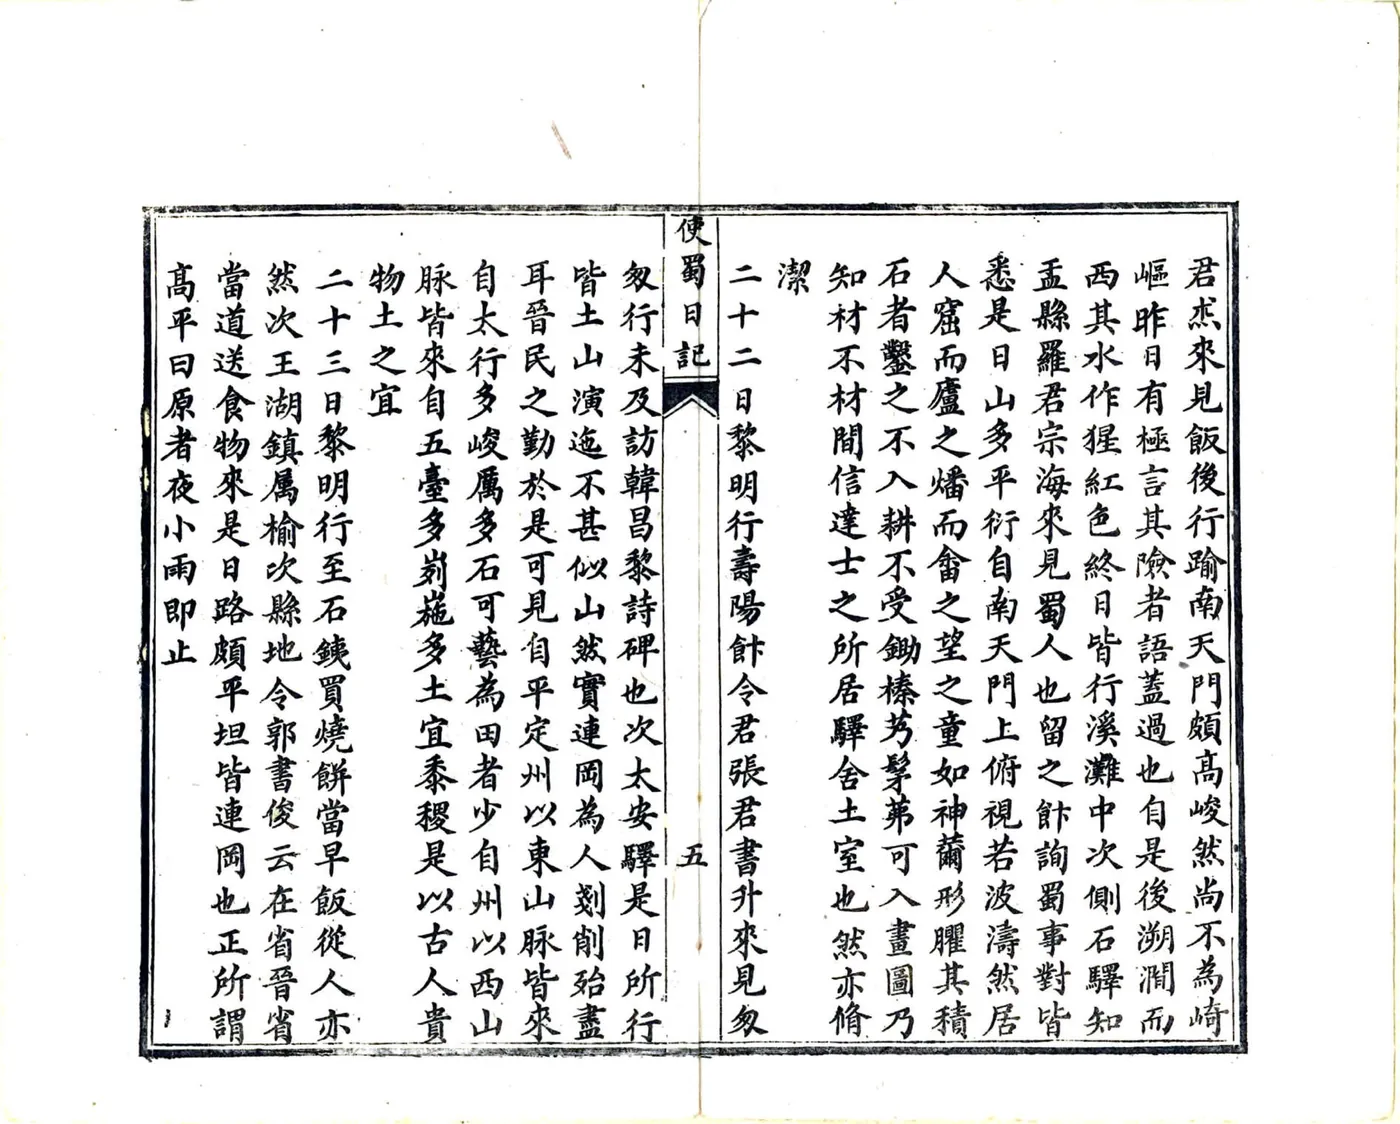 君烝來見飯後行踰南天門頗高峻然尚不為崎
嶇昨日有極言其險者語蓋過也自是後溯澗而
西其水作猩紅色終日皆行溪灘中次側石驛知
盂縣羅君宗海來見蜀人也留之飰詢蜀事對皆
悉是日山多平衍自南天門上俯視若波濤然居
人窟而廬之燔而畬之望之童如神薾形臞其積
石者鑿之不入耕不受鋤榛艿髼茀可入畫圖乃
知材不材間信達士之所居驛舍土室也然亦脩
潔
二十二日黎明行壽陽飰令君張君書升來見匆
使蜀日記
五
匆行未及訪韓昌黎詩碑也次太安驛是日所行
皆土山演迤不甚似山然實連岡為人剗削殆盡
耳晉民之勤於是可見自平定州以東山脉皆來
自太行多峻厲多石可藝為田者少自州以西山
脉皆來自五臺多峛崺多土宜黍稷是以古人貴
物土之宜
二十三日黎明行至石銕買燒餅當早飯從人亦
然次王湖鎮属榆次縣地令郭書俊云在省晉省
當道送食物來是日路頗平坦皆連岡也正所謂
高平曰原者夜小雨即止